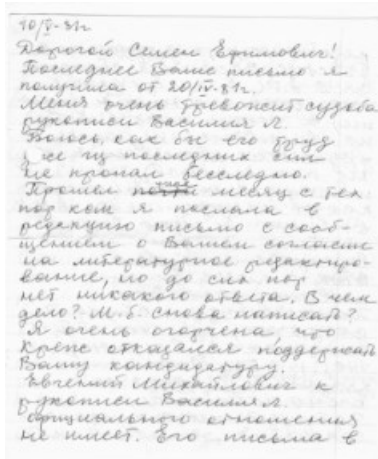 10/V-81г.
Дорогой Семен Ефимович!
Последнее Ваше письмо я
получила от 20/IV-81г.
Меня очень тревожит судьба
рукописи Василия Л.
Боюсь, как бы его труд
из последних сил
не пропал бесследно.
Прошел чуде месяц с тех
пор как я послала в
редакцию письмо с сооб-
щением о Вашем согласии
на литературное редактиро-
вание, но до сих пор
нет никакого ответа. В чем
дело? М.б. снова написать?
Я очень огорчена, что
Крепс отказался поддержать
Вашу кандидатуру.
Евгений Михайлович к
рукописи Василия Л.
официального отношения
не имеет. Его письма в